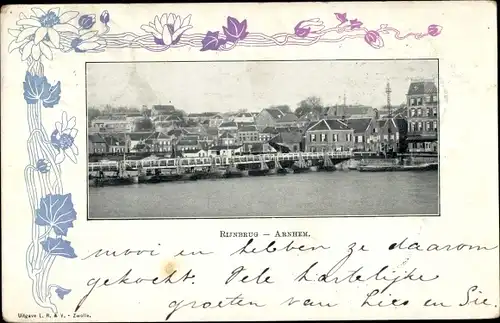 Rijnbrug – Arnhem.
mooi en hebben ze daarom
gekocht. Vele hartelijke
groeten van Lies en Sie
Uitgave L. R. & V. - Zwolle.